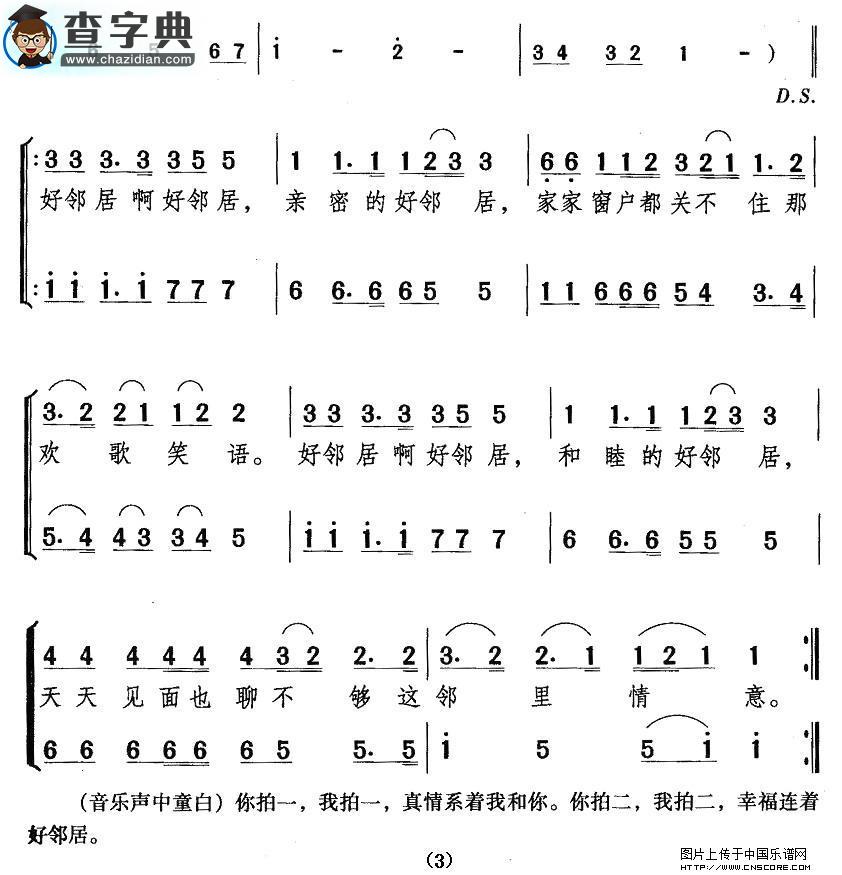 查字典
www.chazidian.com
6 7 | i - 2 - | 3 4 3 2 1 - ) ‖
D.S.
: 3 3 3. 3 3 5 5 5 | 1 1. 1 1 2 3 3 | 6 6 1 1 2 3 2 1 1. 2
好邻居啊好邻居, 亲密的好邻居, 家家窗户都关不住那
: i i i. i 7 7 7 7 | 6 6. 6 6 5 5 | 1 1 6 6 6 5 4 3. 4
3. 2 2 1 1 2 2 | 3 3 3. 3 3 5 5 5 | 1 1. 1 1 2 3 3
欢歌笑语。好邻居啊好邻居, 和睦的好邻居,
5. 4 4 3 3 4 5 | i i i. i 7 7 7 7 | 6 6. 6 5 5 5
4 4 4 4 4 4 3 2 2. 2 | 3. 2 2. 1 1 2 1 1 :‖
天天见面也聊不够这邻里情意。
6 6 6 6 6 6 5 5. 5 | i 5 5 i i :‖
(音乐声中童白) 你拍一, 我拍一, 真情系着我和你。你拍二, 我拍二, 幸福连着
好邻居。
(3)
图片上传于中国乐谱网
HTTP://WWW.CNSCORE.COM